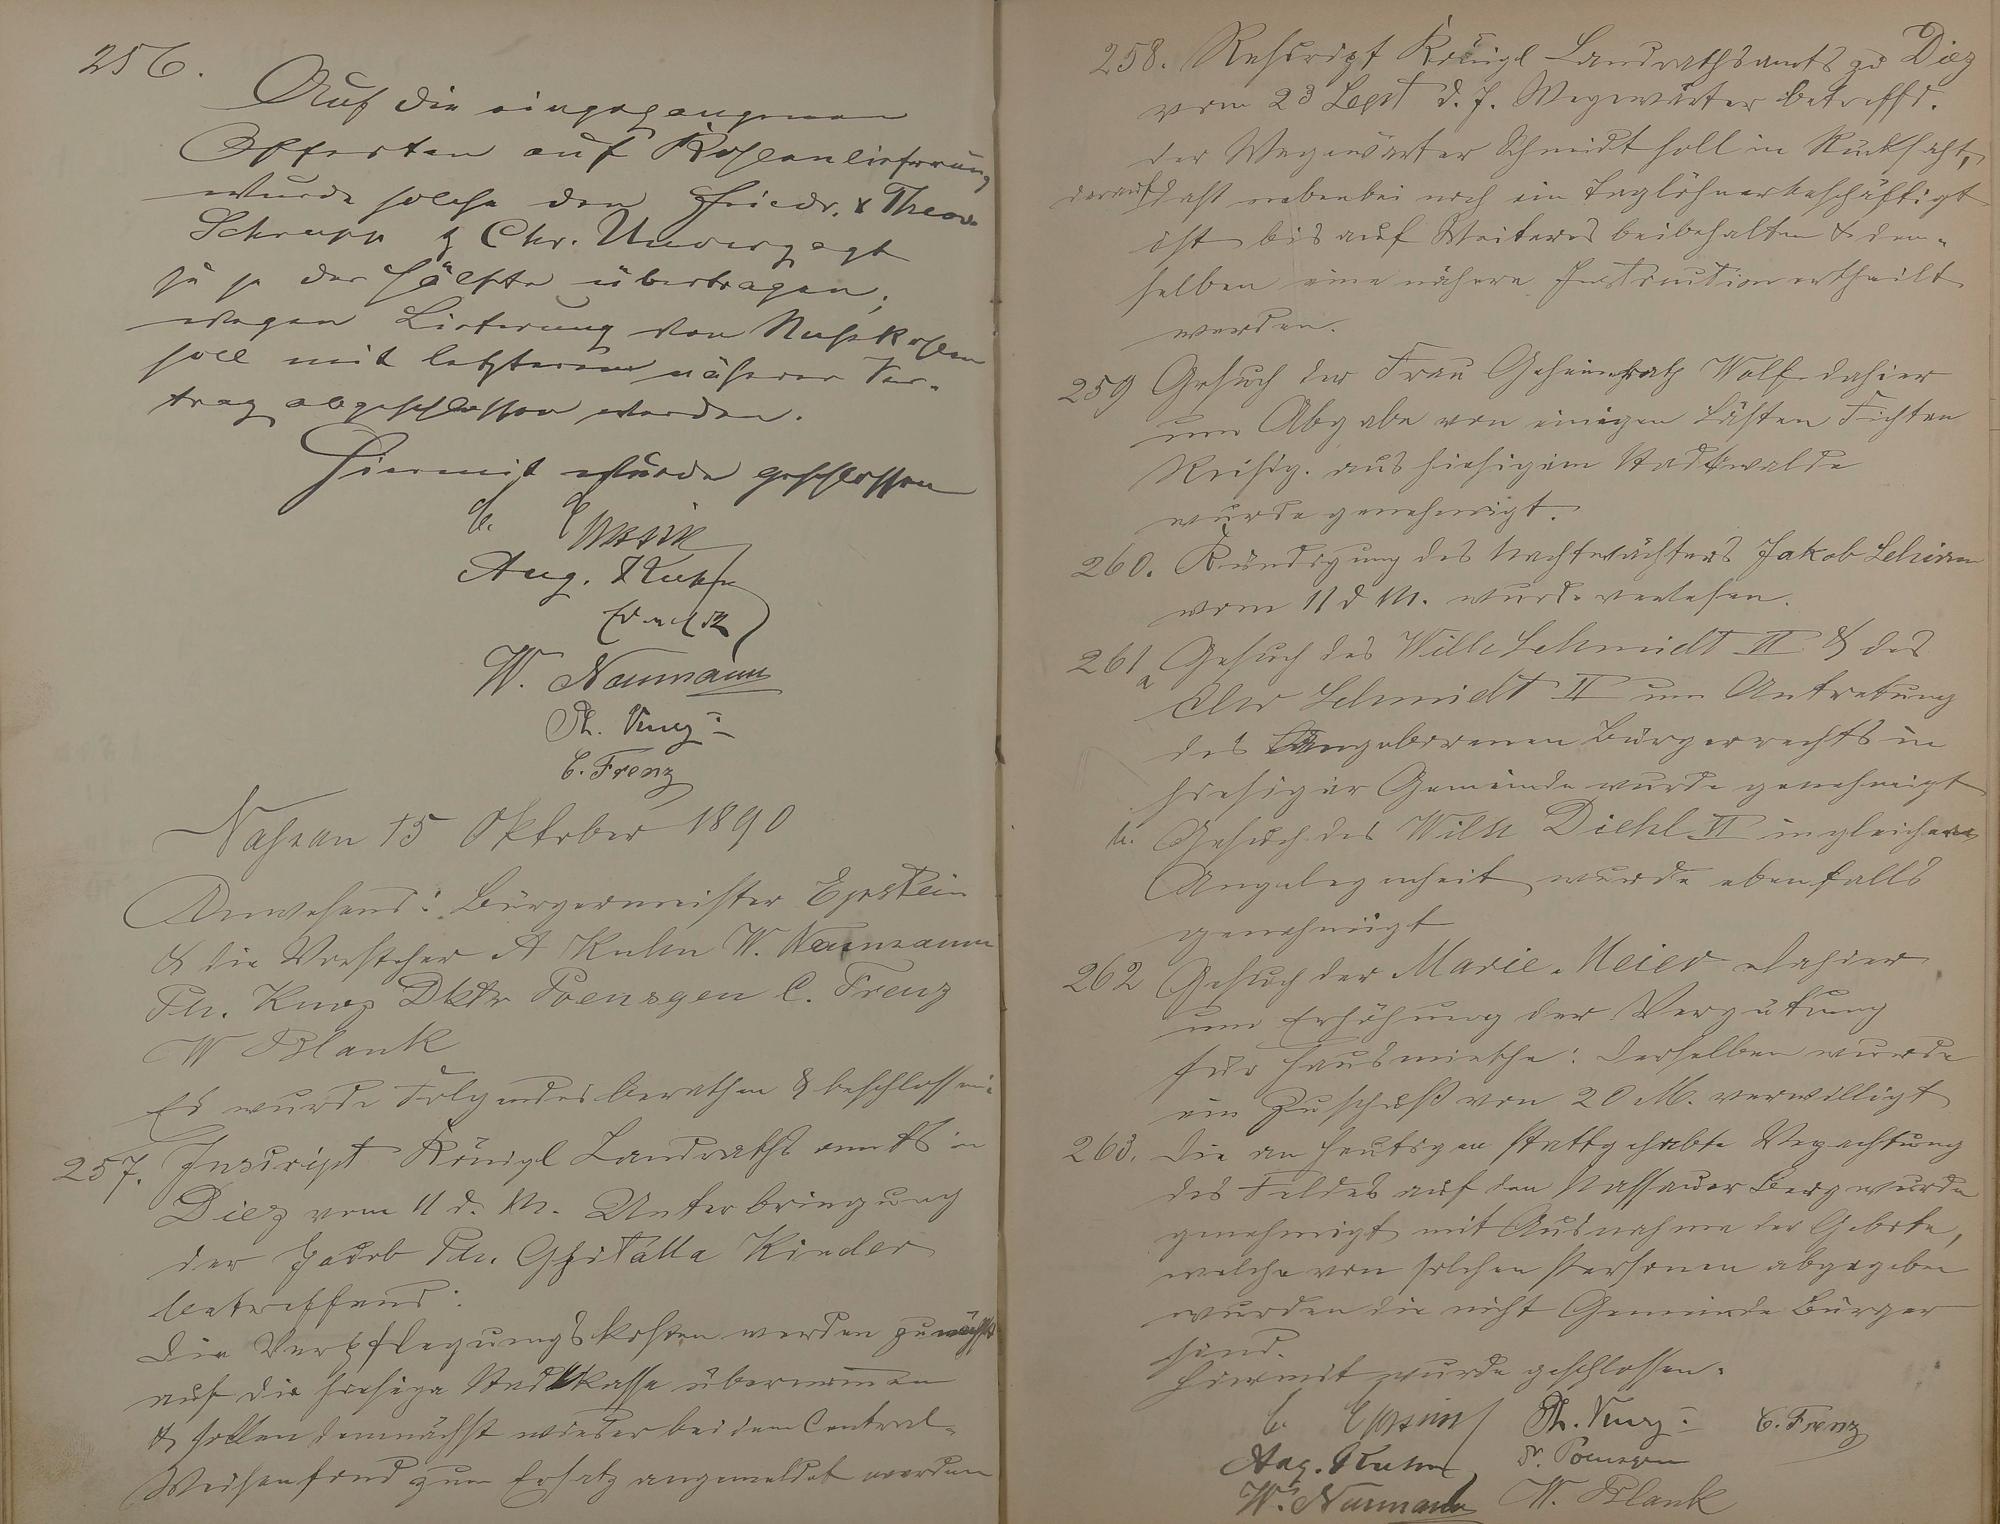 256.
Auf die eingegangenen
Offerten auf Kohlenlieferung
wurde solche den Friedr. & Theod.
Schrupp & Chr. Unverzagt
zu je der Hälfte übertragen,
wegen Lieferung von Nußkohlen
soll mit letzterem näherer Ver-
trag abgeschlossen werden.
Hiermit wurde geschlossen
C. Epstein
Aug. Kuhn
W. Naumann
Ph. Kurz
C. Frenz
Nassau 15 Oktober 1890
Anwesend: Bürgermeister Epstein
& die Vorsteher A Kuhn W. Naumann
Ph. Kurz Dktr Poensgen C. Frenz
W Blank
Es wurde Folgendes berathen & beschlossen:
257. Inscript Königl Landraths amts in
Diez vom 11 d. M. Unterbringung
der Jacob Ph. Kinder
betreffend:
Die Verpflegungskosten werden zunächst
auf die hiesige Stadtkasse übernommen
& sollen demnächst wieder bei dem Central-
Waisenfond zum Ersatz angemeldet werden
258. Rescript Königl Landrathsamts zu Diez
vom 23 Sept d. J. Wegewärter betreffd.
der Wegewärter Schmidt soll in Rücksicht,
darauf daß nebenbei noch ein Taglöhner beschäftigt
ist bis auf Weiteres beibehalten & dem-
selben eine nähere Instruction ertheilt
werden.
259 Gesuch der Frau Geheimrath Wolf dahier
um Abgabe von einigen Lasten Fichten
Reisig. aus hiesigem Stadtwalde
wurde genehmigt.
260. Kündigung des Nachtwächters Jakob
vom 11 d M. wurde verlesen.
261 a Gesuch des Wilh Schmidt II & des
Chr Schmidt II um Antretung
des angeborenen Bürgerrechts in
hiesiger Gemeinde wurde genehmigt
b. Gesuch des Wilh Diehl VI in gleicher
Angelegenheit wurde ebenfalls
genehmigt
262 Gesuch der Marie Meier dahier
um Erhöhung der Vergütung
für Hausmiethe: Derselben wurde
ein Zuschuß von 20 M. verwilligt
263. Die am heutigen stattgehabte Verpachtung
des Feldes auf den Nassauer Berg wurde
genehmigt mit Ausnahme der Gebote,
welche von solchen Personen abgegeben
wurden die nicht Gemeinde Bürger
sind.
Hiermit wurde geschlossen.
C. Epstein Ph. Kurz C. Frenz
Aug. Kuhn Dr. Poensgen
W. Naumann W. Blank